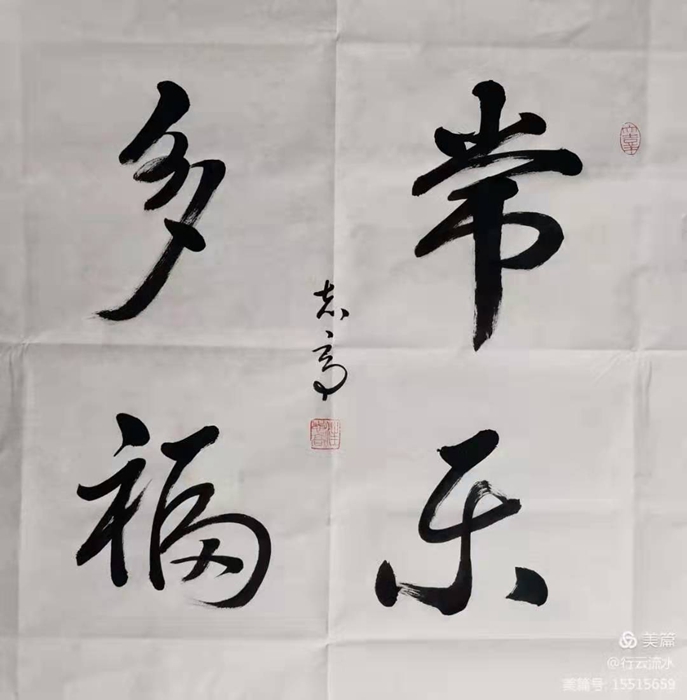 常乐
多福
志高
美篇
@行云流水
美篇号: 15515659